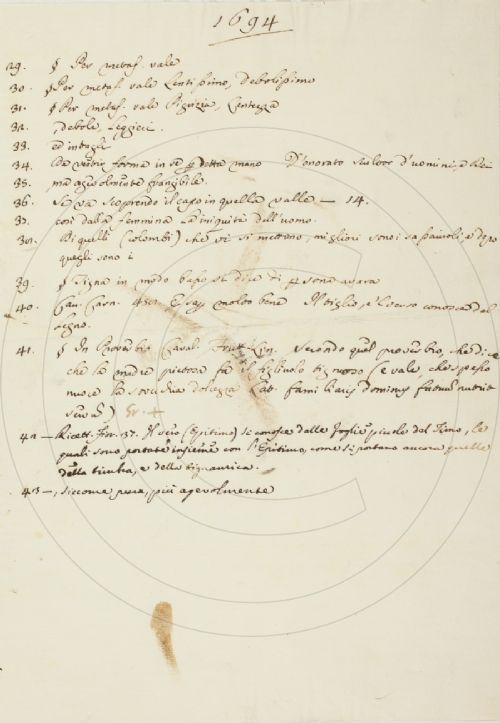 1694
29. § Per metaf. vale
30. § Per metaf. vale Lentissimo, Debolissimo
31. § Per metaf. vale Pigrizia, Lentezza
32. , debole, Leggieri.
33. ed intagli
34. Da vestir forma in se per detta mano D'onorato scultor d'uomini, e Dei
35. ma agevolmente frangibile.
36. Si va scoprendo il capo in quella valle — 14.
37. così dalla femmina la iniquità dell'uomo.
38. Di quelli (colombi) che vi si mettono, migliori sono i sassaiuoli, e dopo
quegli sono i
39. § Tigna in modo basso si dice di persona avara
40. Can. Carn. 450. E segg molto bene Il tiglio, e 'l leccio conosce al
legno.
41. § In Proverbio Caval. Frutt. Ling. Secondo quel proverbio, che dice
che la madre pietosa fa il figliuolo tignoso (e vale che spesso
nuoce la soverchia dolcezza. Lat.
42 — Ricett. Fior. 37. Il vero (Epitimo) si conosce dalle foglie piccole del Timo, le
quali sono portate insieme con l'Epitimo, come si portano ancora quelle
della timbra, e della
43 —, siccome pera, più agevolmente